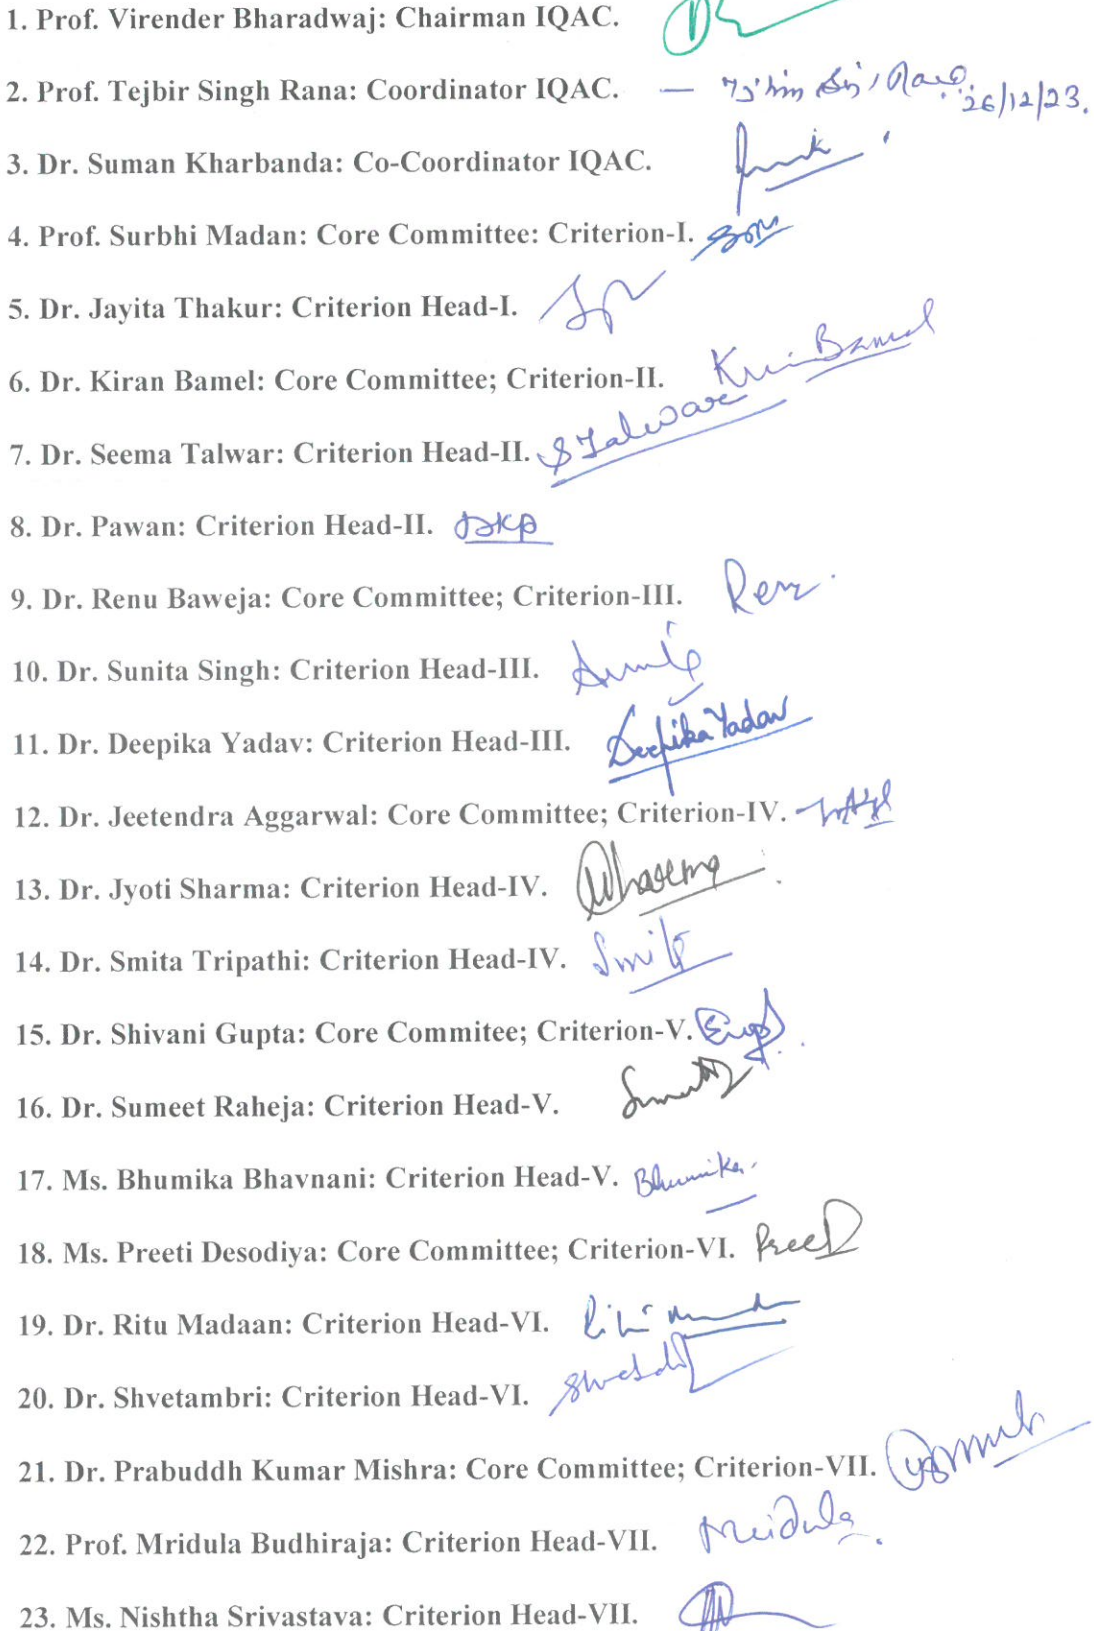 1. Prof. Virender Bharadwaj: Chairman IQAC.
2. Prof. Tejbir Singh Rana: Coordinator IQAC. — 26/12/23.
3. Dr. Suman Kharbanda: Co-Coordinator IQAC.
4. Prof. Surbhi Madan: Core Committee: Criterion-I.
5. Dr. Jayita Thakur: Criterion Head-I.
6. Dr. Kiran Bamel: Core Committee; Criterion-II. Kiran Bamel
7. Dr. Seema Talwar: Criterion Head-II. STalwar
8. Dr. Pawan: Criterion Head-II.
9. Dr. Renu Baweja: Core Committee; Criterion-III.
10. Dr. Sunita Singh: Criterion Head-III.
11. Dr. Deepika Yadav: Criterion Head-III. Deepika Yadav
12. Dr. Jeetendra Aggarwal: Core Committee; Criterion-IV.
13. Dr. Jyoti Sharma: Criterion Head-IV.
14. Dr. Smita Tripathi: Criterion Head-IV. Smita
15. Dr. Shivani Gupta: Core Commitee; Criterion-V.
16. Dr. Sumeet Raheja: Criterion Head-V.
17. Ms. Bhumika Bhavnani: Criterion Head-V. Bhumika
18. Ms. Preeti Desodiya: Core Committee; Criterion-VI.
19. Dr. Ritu Madaan: Criterion Head-VI.
20. Dr. Shvetambri: Criterion Head-VI.
21. Dr. Prabuddh Kumar Mishra: Core Committee; Criterion-VII.
22. Prof. Mridula Budhiraja: Criterion Head-VII. Mridula
23. Ms. Nishtha Srivastava: Criterion Head-VII.